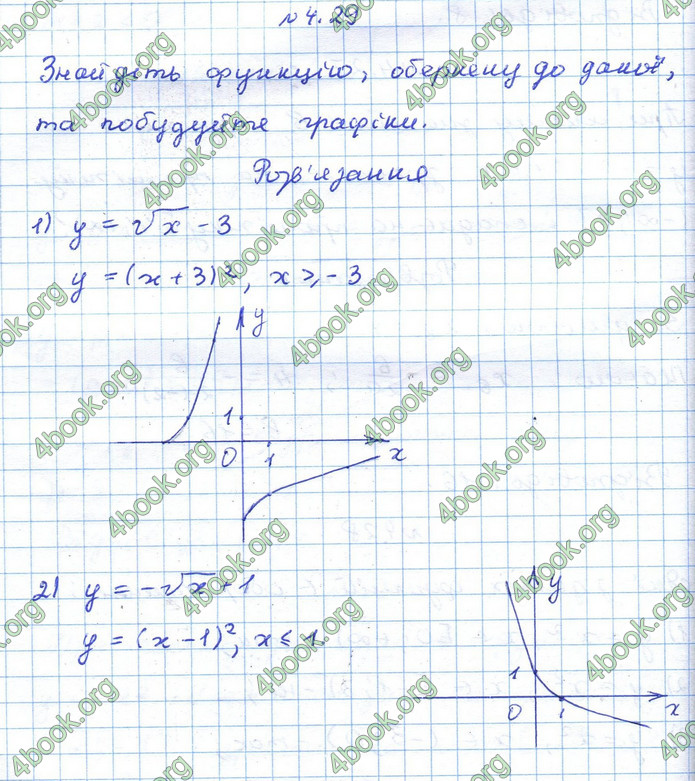 № 4.29
Знайдіть функцію, обернену до даної,
та побудуйте графіки.
Розв'язання
1) y = √x - 3
y = (x + 3)², x ≥ - 3
y
1
0 1 x
2) y = -√x + 1
y = (x - 1)², x ≤ 1
y
1
0 1 x
4book.org